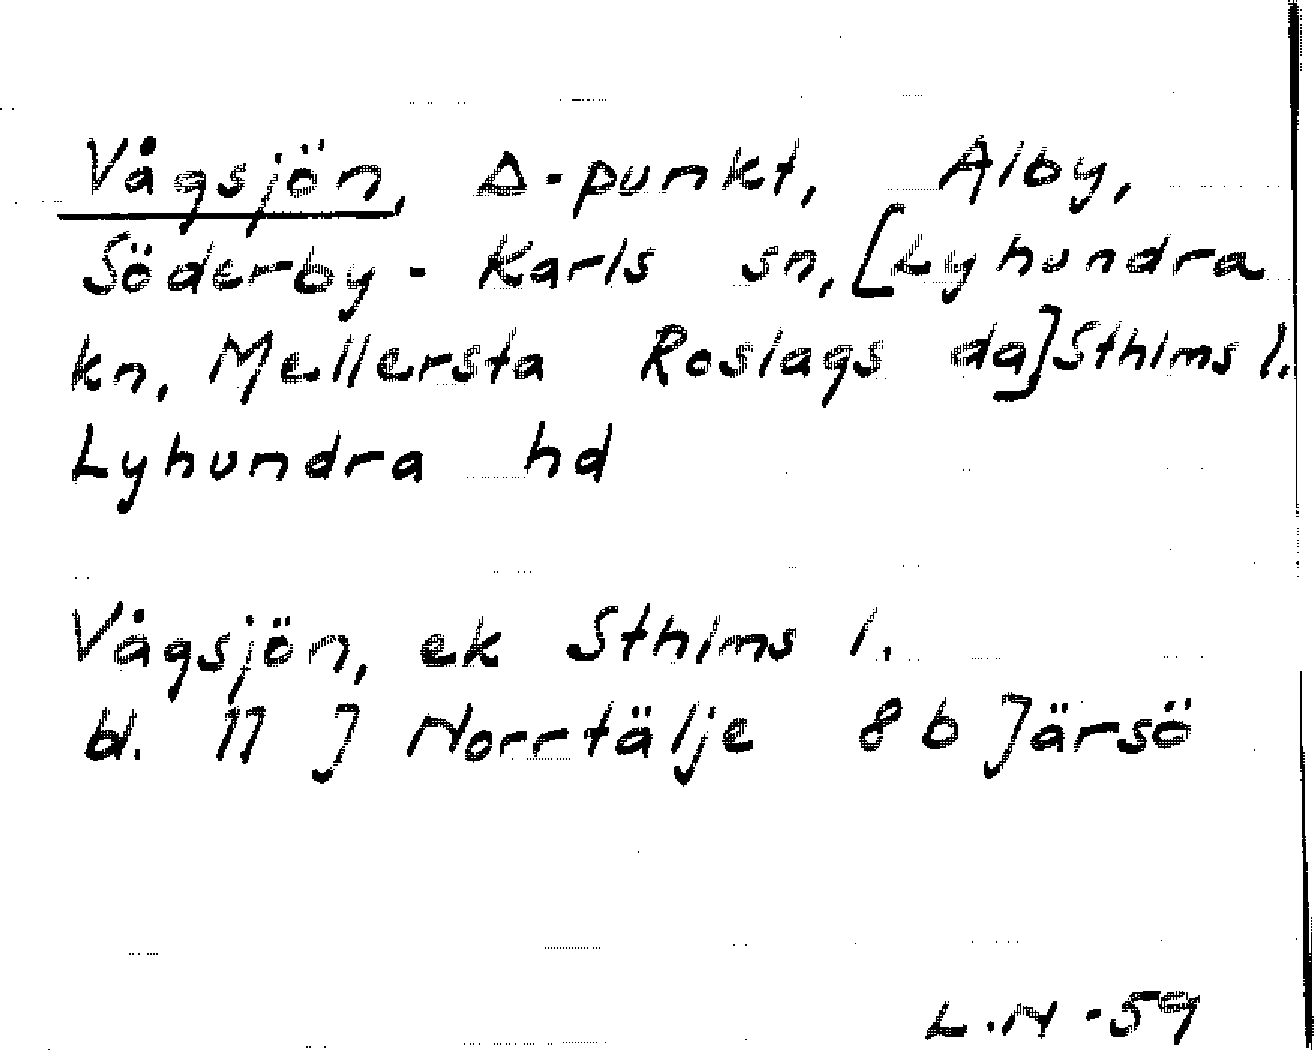 Vågsjön, Δ-punkt, Alby,
Söderby-Karls sn, [Lyhundra
kn, Mellersta Roslags da] Sthlms l.
Lyhundra hd
Vågsjön, ek Sthlms l.
bl. 11 J Norrtälje 8 b Järsö
L.N -59